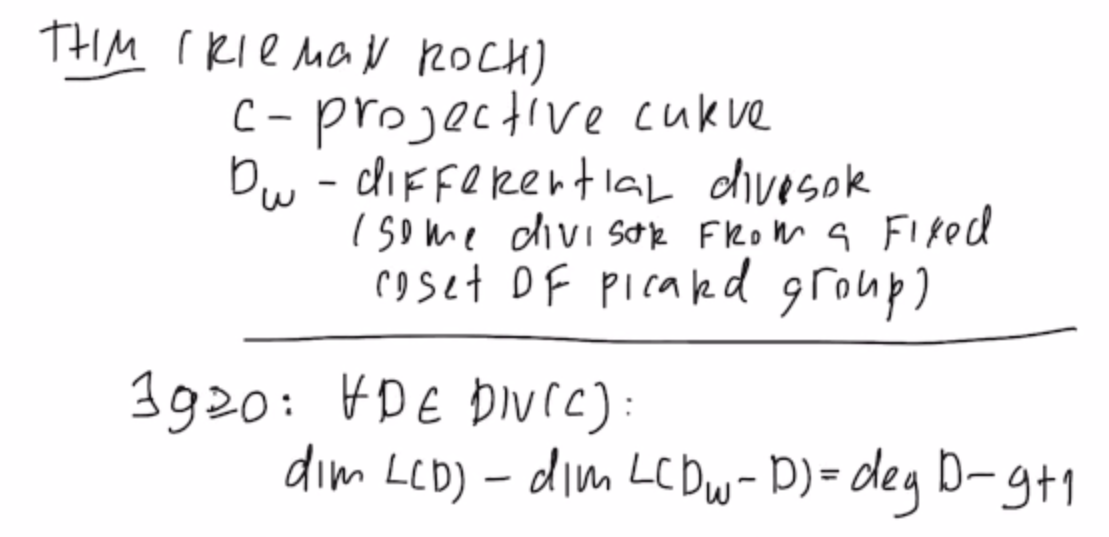 THM (RIEMAN ROCH)
C - projective curve
D_w - differential divisor
(some divisor from a fixed
coset of picard group)
∃g≥0: ∀D∈DIV(C):
dim L(D) - dim L(D_w - D) = deg D - g+1